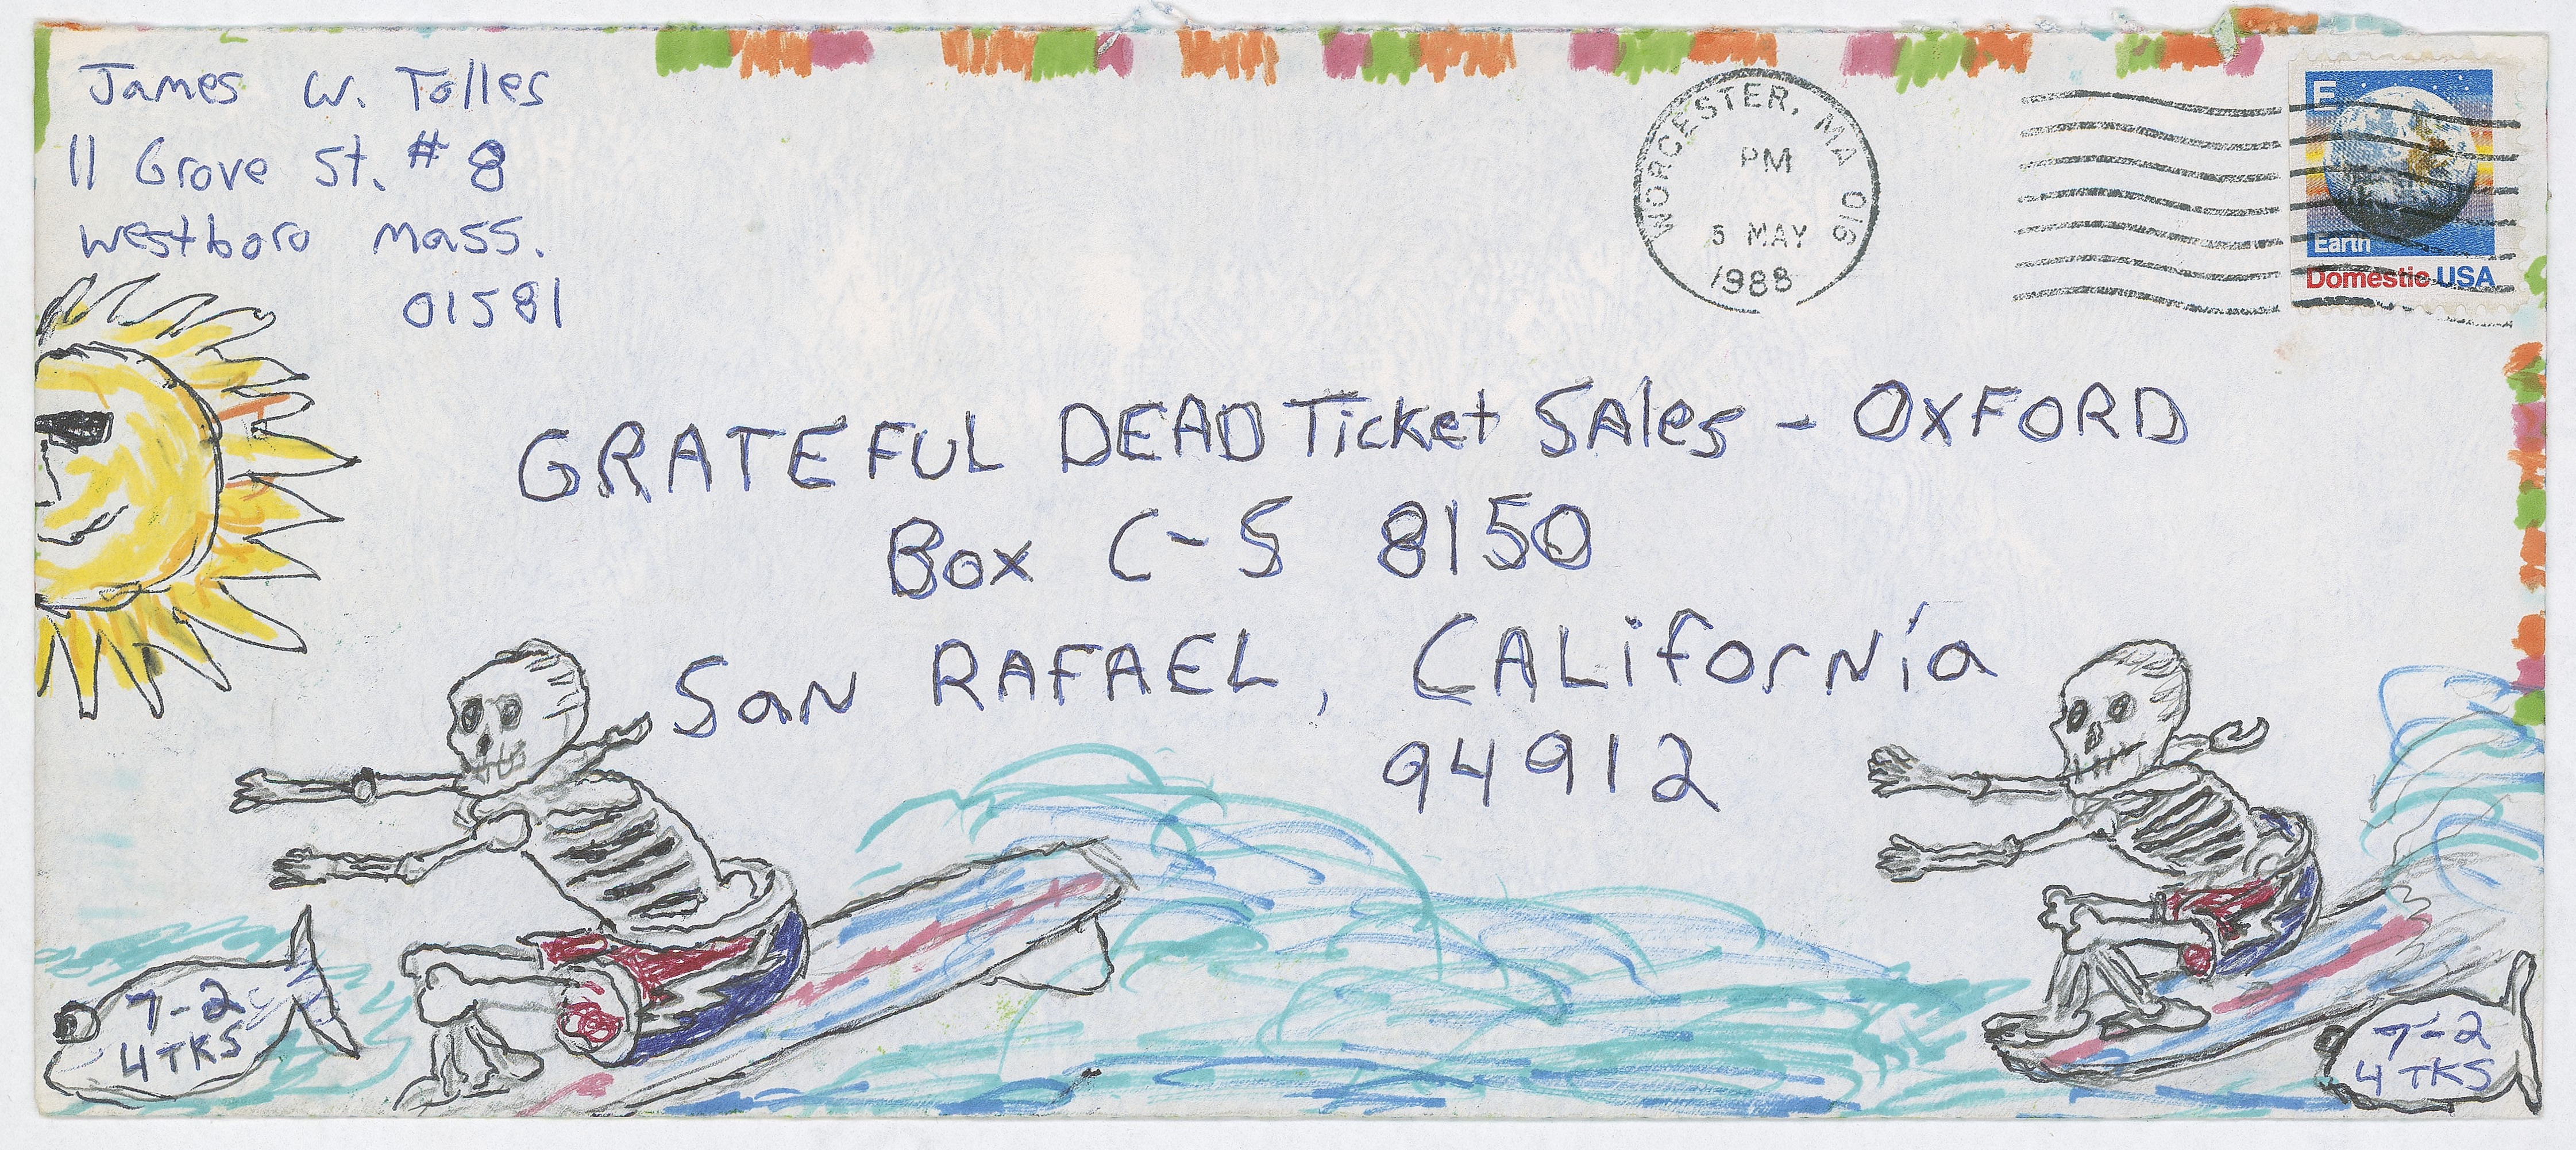 James W. Tolles
11 Grove St. # 8
Westboro Mass.
01581
WORCESTER, MA 016
PM
5 MAY
1988
E
Earth
Domestic USA
GRATEFUL DEAD Ticket SAles - OXFORD
Box C-S 8150
San RAFAEL, CALifornia
94912
7-2
4 TKS
7-2
4 TKS